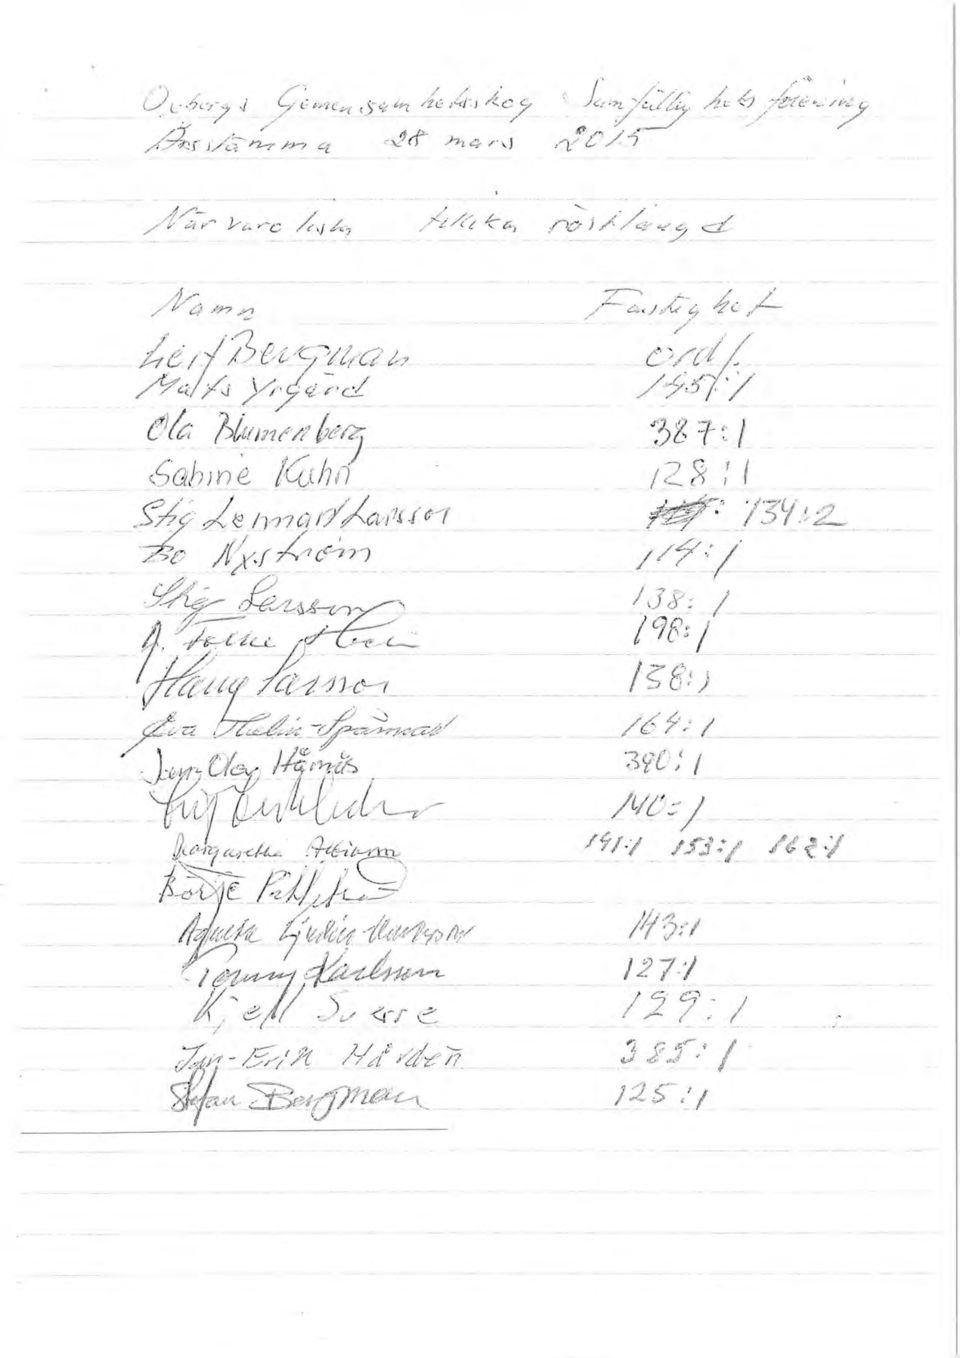 Gemensamhetsskog Samfällighetsförening
Årsstämma 28 mars 2015
Närvarolista tillika röstlängd
Namn Fastighet
Leif Bergman ordf.
Mats Yrgård 145:1
Ola Blumenberg 387:1
Sabine Kuhn 128:1
Stig Lennart Larsson 134:2
Bo Nyström 114:1
Stig Larsson 138:1
198:1
Larsson 138:1
Eva 164:1
Jan-Olov 390:1
140:1
Margaretha 141:1 153:1 162:1
Börje
Agneta 143:1
Tommy Karlsson 127:1
Kjell Sverre 129:1
Jan-Erik Hårdén 385:1
Stefan Bergman 125:1